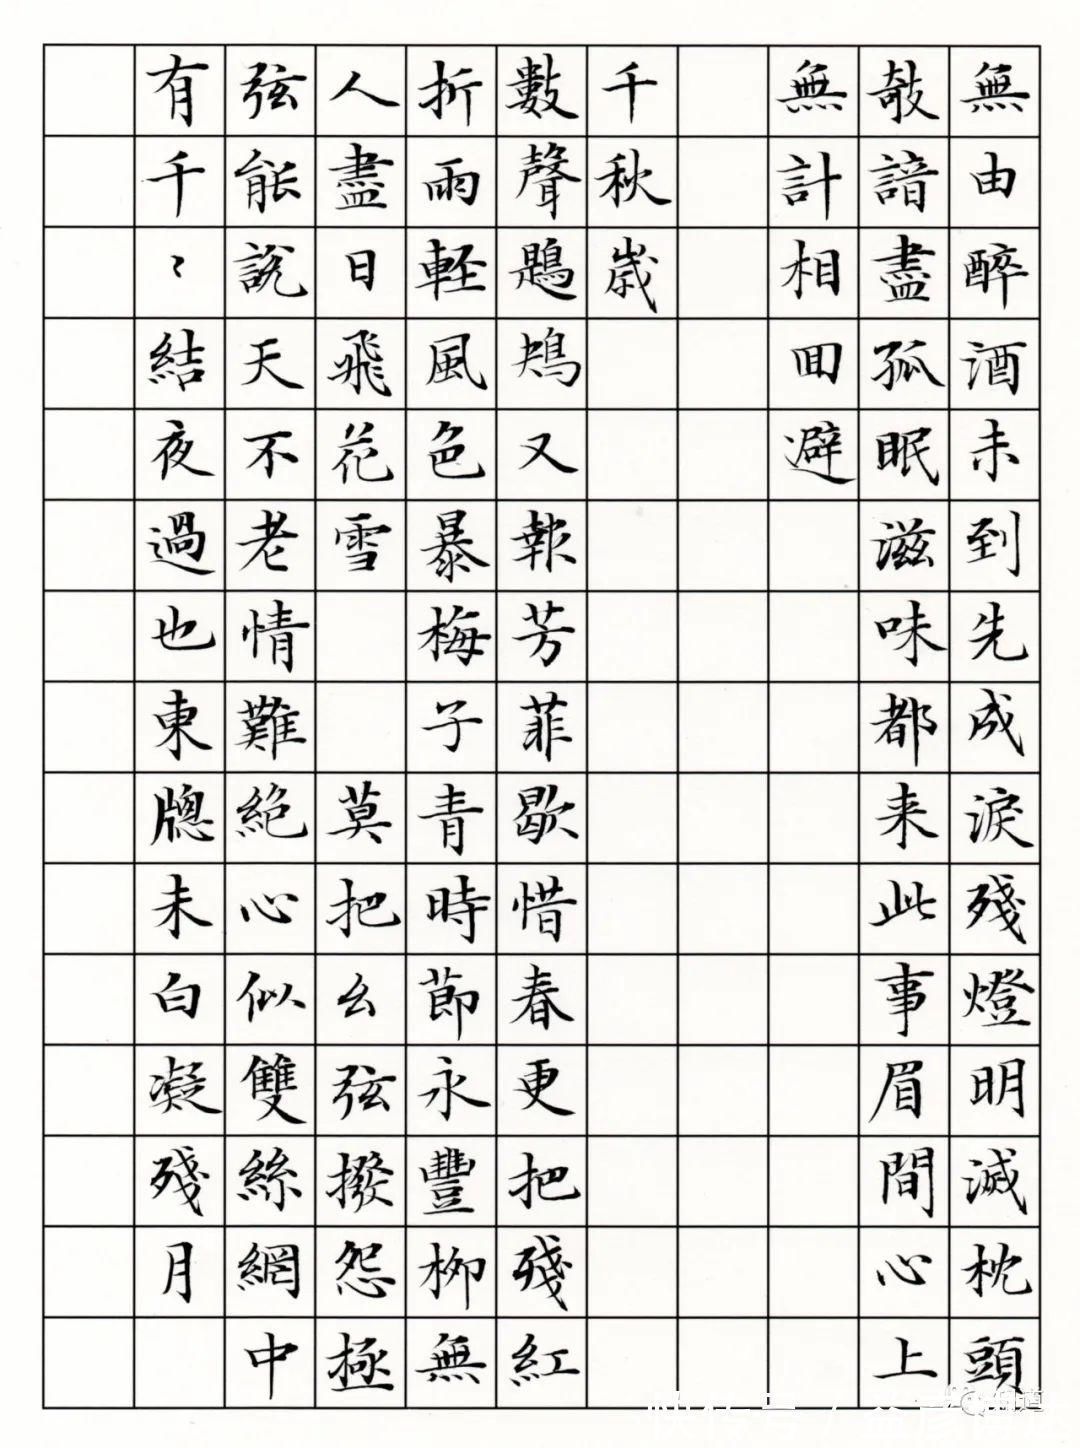 無由醉酒未到先成淚殘燈明滅枕頭
敧諳盡孤眠滋味都来此事眉間心上
無計相囬避
千秋歲
數聲鶗鴂又報芳菲歇惜春更把殘紅
折雨軽風色暴梅子青時節永豐柳無
人盡日飛花雪 莫把幺弦撥怨極
弦能說天不老情難絕心似雙絲網中
有千〻結夜過也東牕未白凝殘月